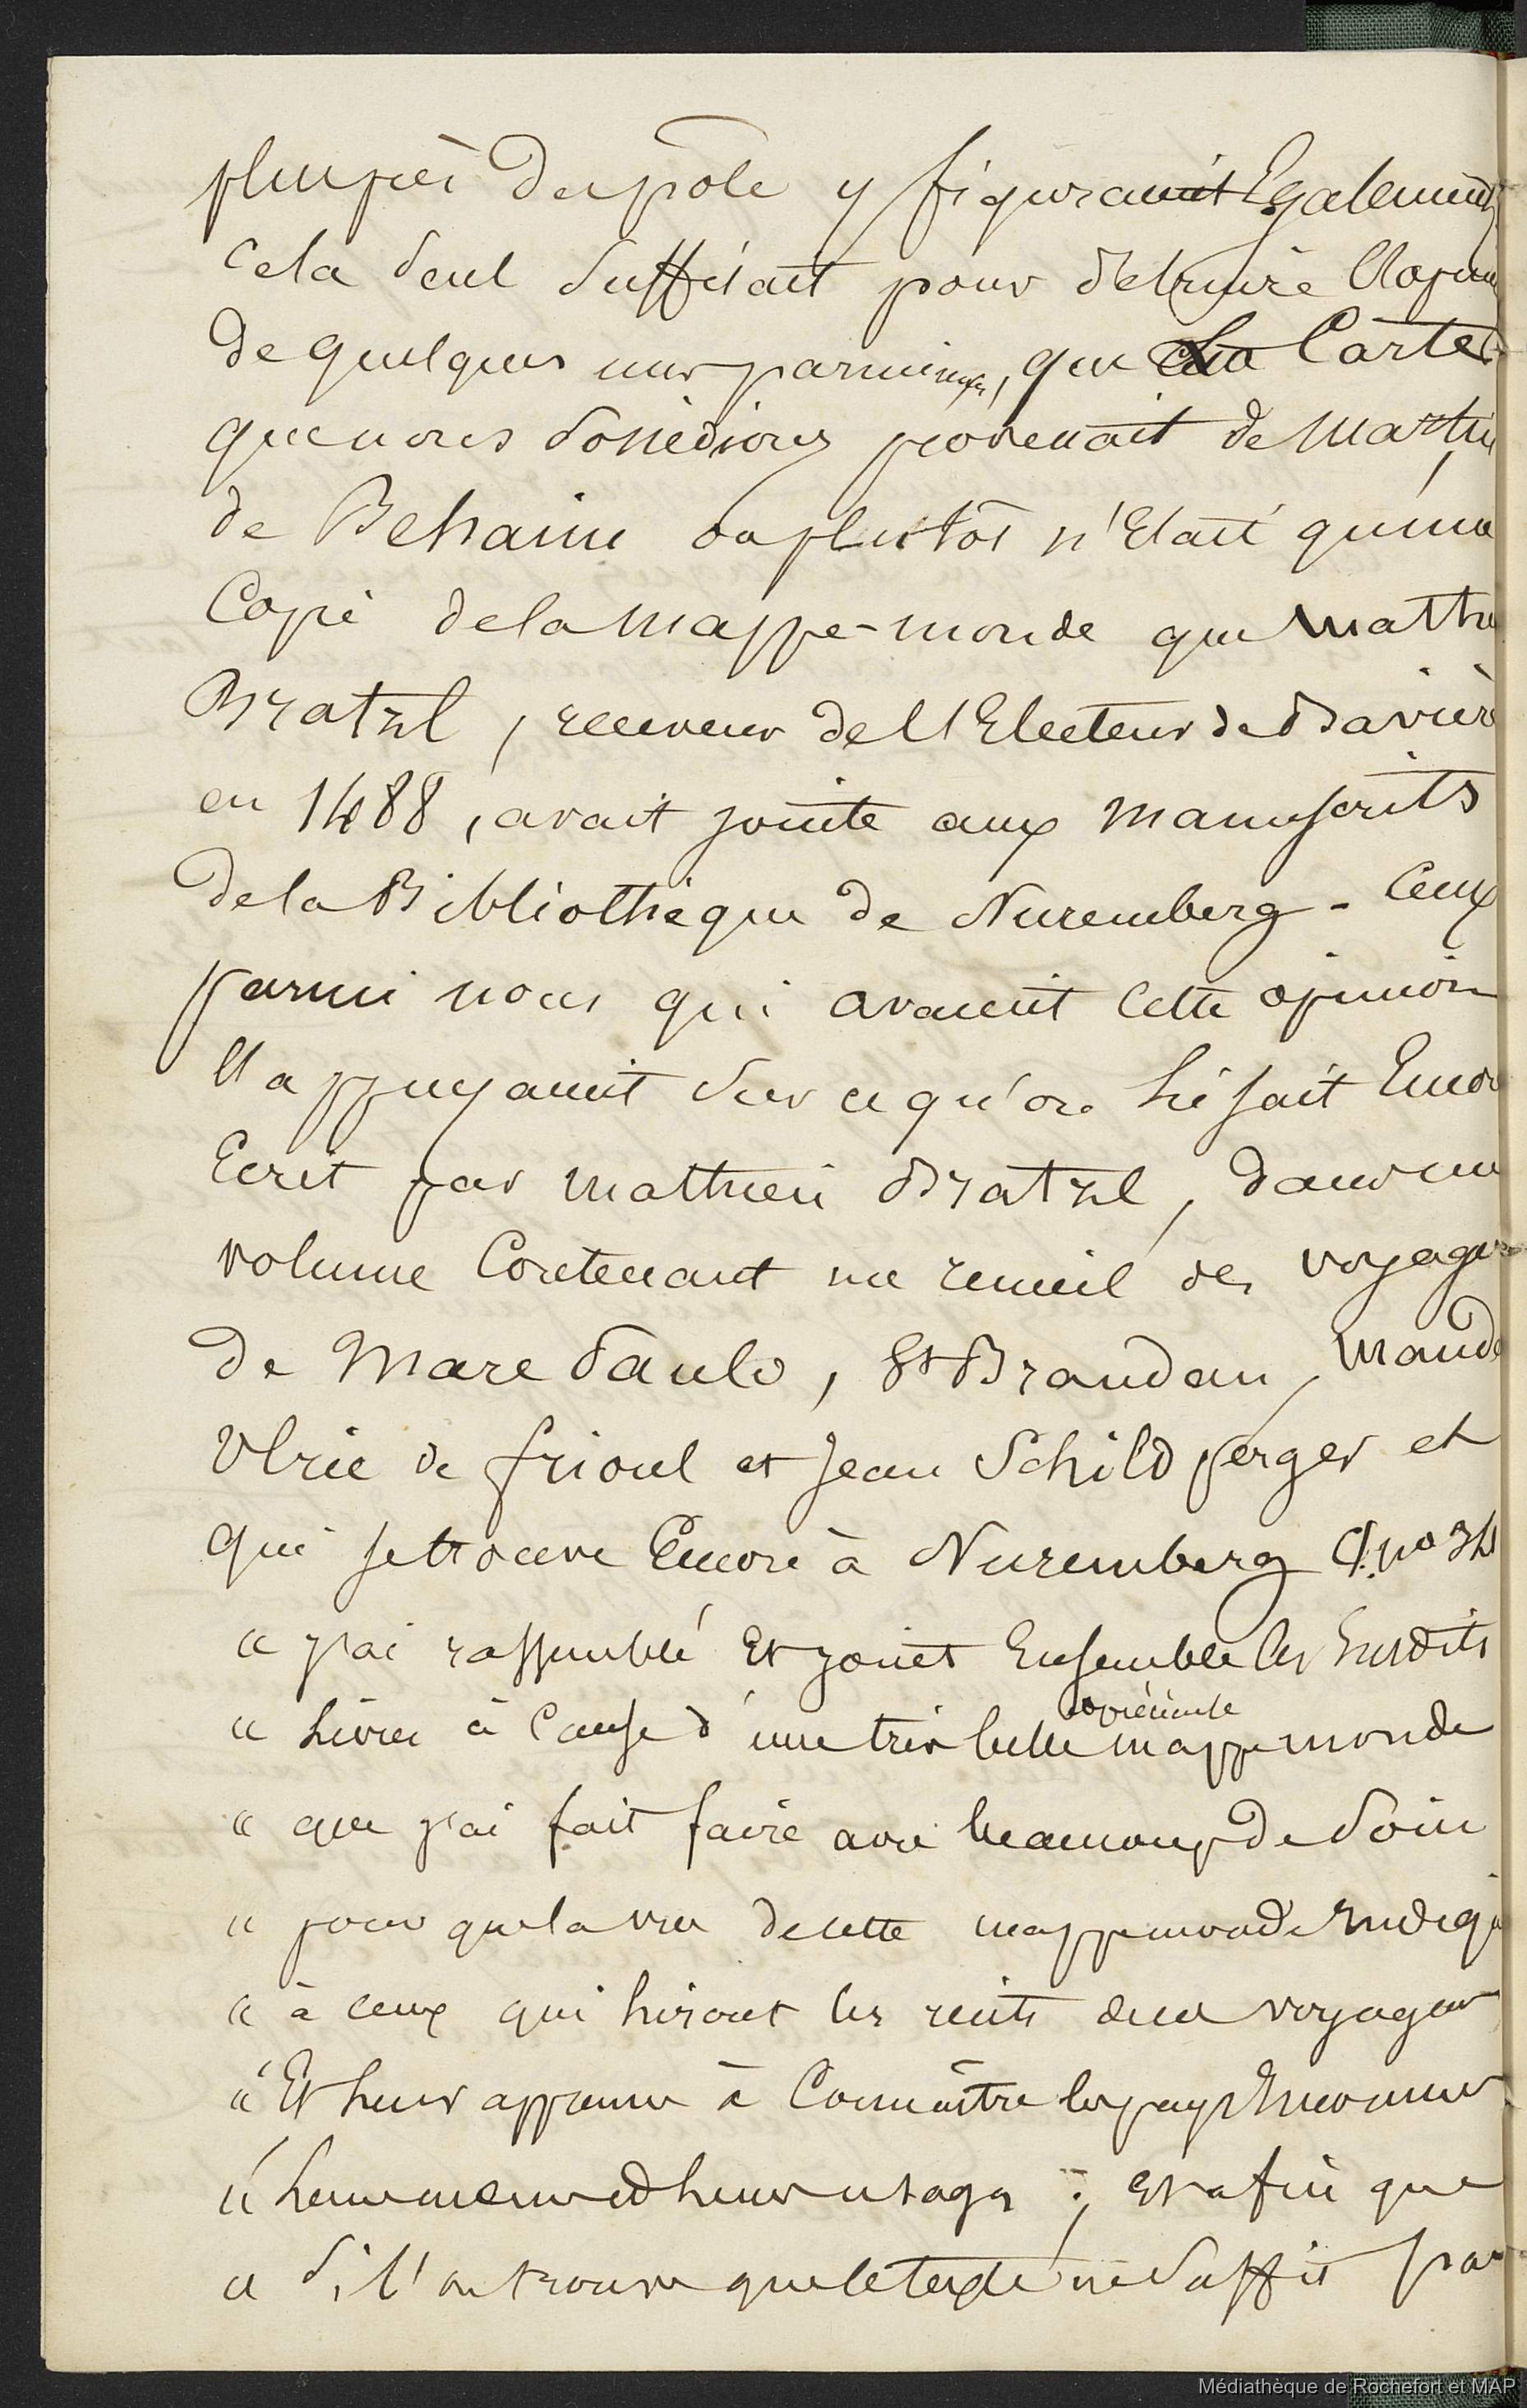 plus près du pôle y figuraient Egalement
Cela seul suffisait pour détruire l'Opin
de quelques uns parmi nous, que la Carte
que nous possédions provenait de Martin
de Behaim ou plutôt n'Etait qu'une
Copie de la Mappe-monde que Matthi
Bratzl, receveur de l'Electeur de Bavière
en 1488, avait jointe aux Manuscrits
de la Bibliothèque de Nuremberg - Ceux
parmi nous qui avaient cette opinion
l'appuyaient sur ce qu'on lisait Encor
Ecrit par Matthieu Bratzl, dans un
volume Contenant un recueil des voyages
de Marc Paulo, St Brandan, Mande
Ulric de frioul et Jean Schildperger et
qui se trouve Encore à Nuremberg
" j'ai rassemblé Et joint Ensemble les susdits
" livres à Cause d'une très belle mappemonde
" que j'ai fait faire avec beaucoup de soin
" pour que la vue de cette mappemonde indiqu
" à ceux qui liront les récits de ces voyages
" Et leur apprenne à Connaître les pays
" leurs mœurs et leurs usages ; Et afin que
" si l'on trouve que le texte ne suffit pas
Médiathèque de Rochefort et MAP